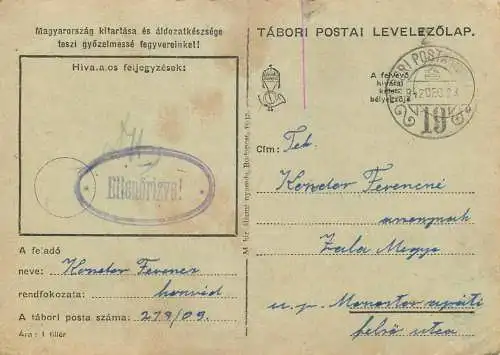 Magyarország kitartása és áldozatkészsége
teszi győzelmessé fegyvereinket!
Hiva.a.os feljegyzések:
Ellenőrizve!
A feladó
neve: Kondor Ferencz
rendfokozata: honvéd
A tábori posta száma: 219/09.
Ára: 1 fillér
M. kir. állami nyomda, Budapest.
TÁBORI POSTAI LEVELEZŐLAP.
A felvevő
hivatal
kelet-
bélyegzője
TÁBORI POSTA
19
Cím: Tek.
Kondor Ferencné
Zala Megye
u. p. Monostor
felső utca